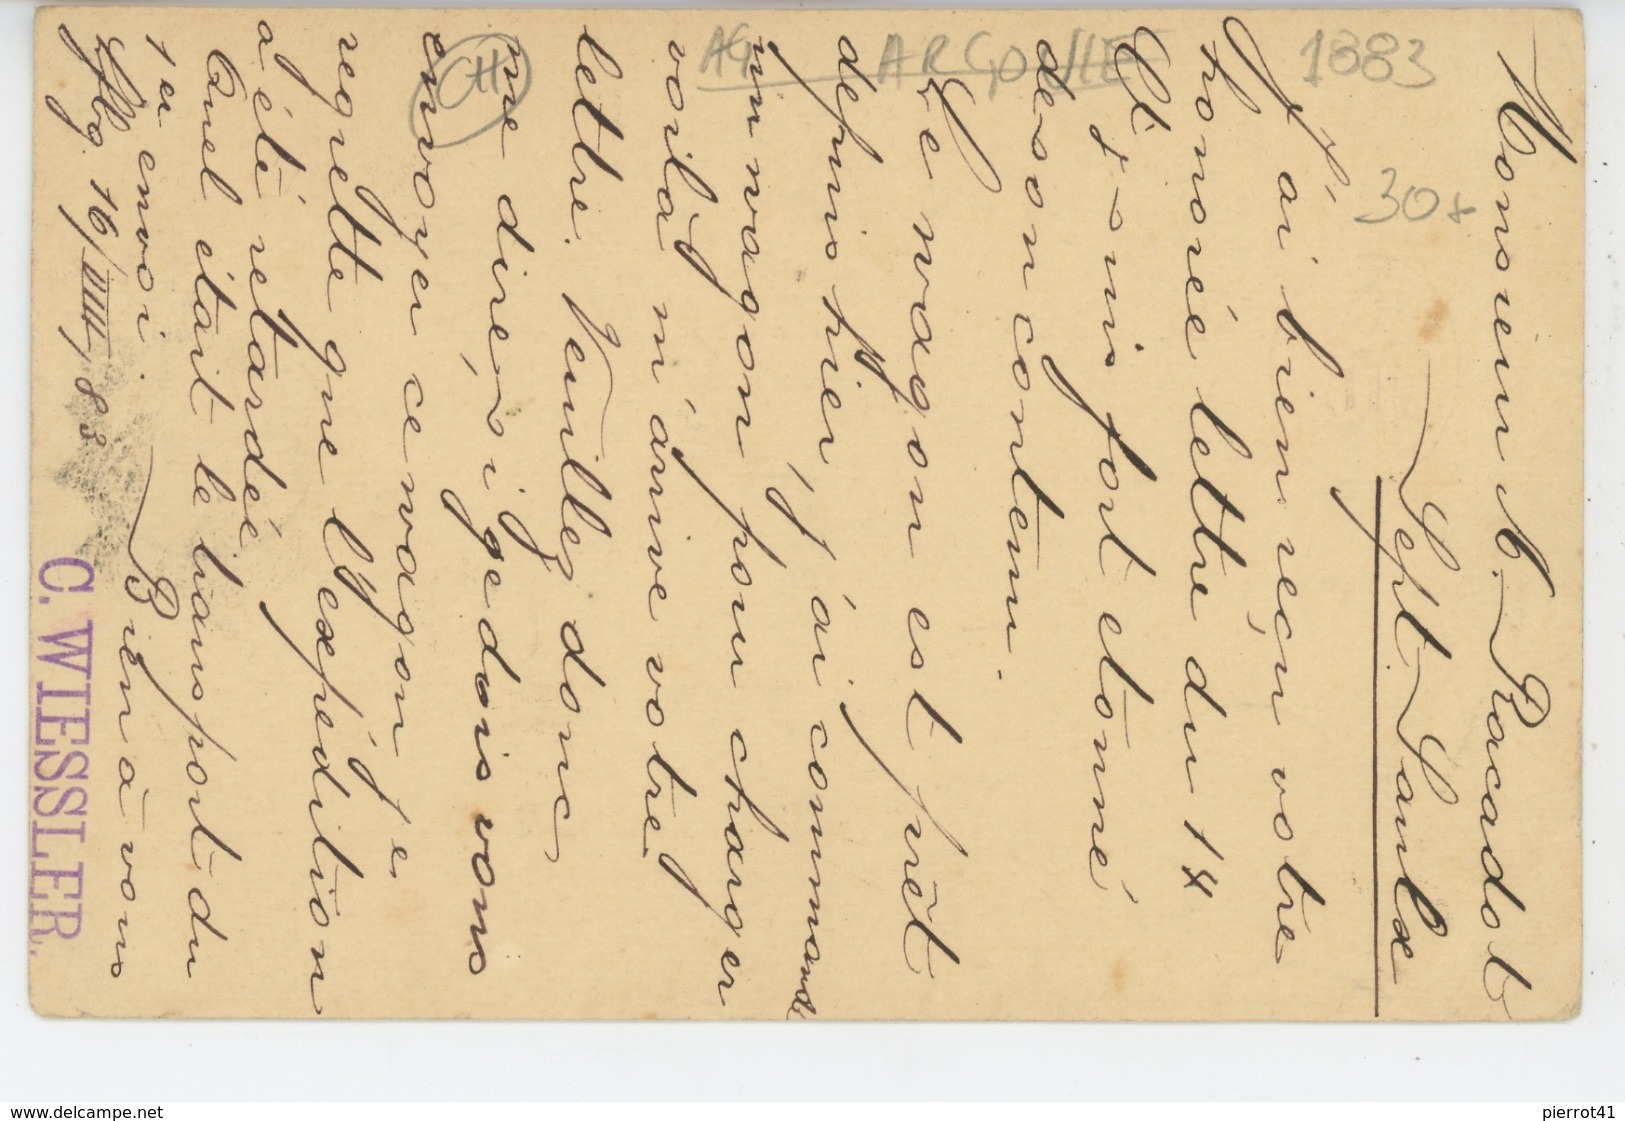 Monsieur A. Racadot
Sept-Saulx
J'ai bien réçu votre
honoré lettre du 14
et suis fort etonné
de son contenu.
Le wagon est prêt
depuis hier, j'ai command
un wagon pour charger
voilà m'arrive votre
lettre. Veuillez donc
me dire, si je dois vous
envoyer ce wagon, je
regrette que l'expédition
a été retardée
Quel était le transport du
1er envoi. Bien à vous
16/VIII, 83
C. WIESSLER.
AG ARGOLLE
1883
30
www.delcampe.net
pierrot41